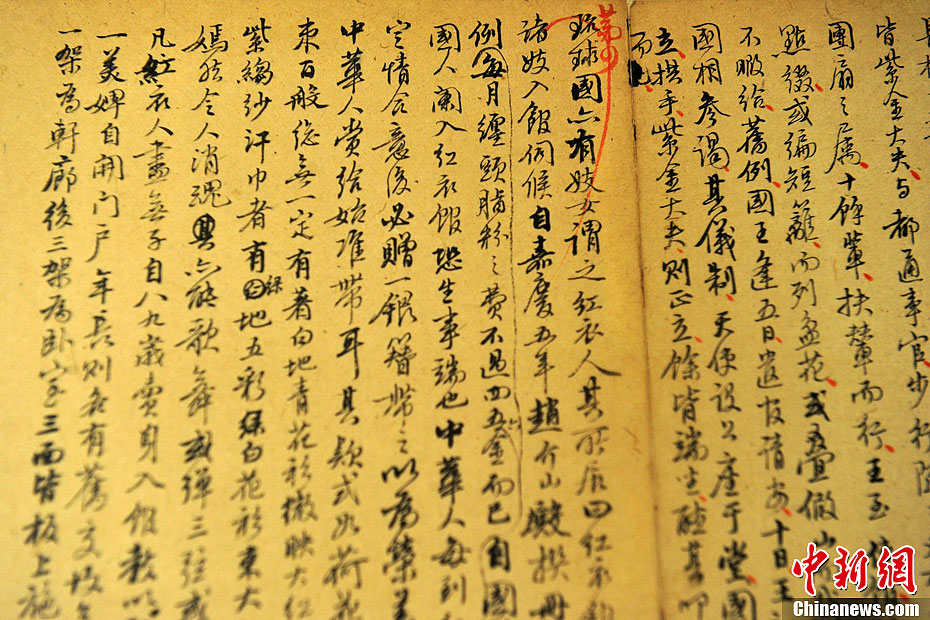 皆紫金大夫与都通事官步行
團扇之属十餘輩扶輦而行王至
點綴或編短籬而列盆花或叠假山
不暇給舊例國王逢五日遣官請安十日王
國相参謁其儀制天使設公座于堂國
立拱手紫金大夫則正立餘皆端坐
而已
琉球國六有妓女謂之紅衣人其所居曰紅衣
諸妓入館伺候自嘉慶五年趙介山殿撰
例每月纏頭脂粉之費不過四五金而已自國
國人闌入紅衣館恐生事端也中華人每到
定情合意後必贈一銀簪帶之以為榮
中華人賞給始准帶耳其款式如荷花
束百般總無一定有著白地青花衫襯映大紅
紫縐纱汗巾者有緑地五彩緑白花衫束大
嫣然令人消魂其六能歌舞或弹三弦或
凡紅衣人盡無子自八九歲賣身入館教以
一美婢自開門户年長則各有舊交
一架為軒廊後三架為卧室三面皆板上施
中新網
Chinanews.com